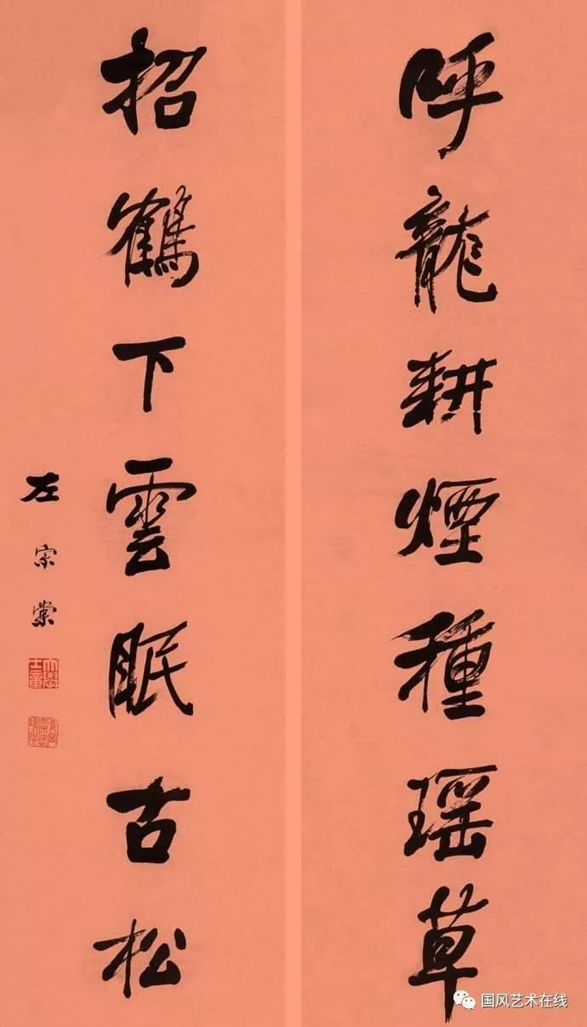 呼龍耕煙種瑶草
招鶴下雲眠古松
左宗棠
国风艺术在线